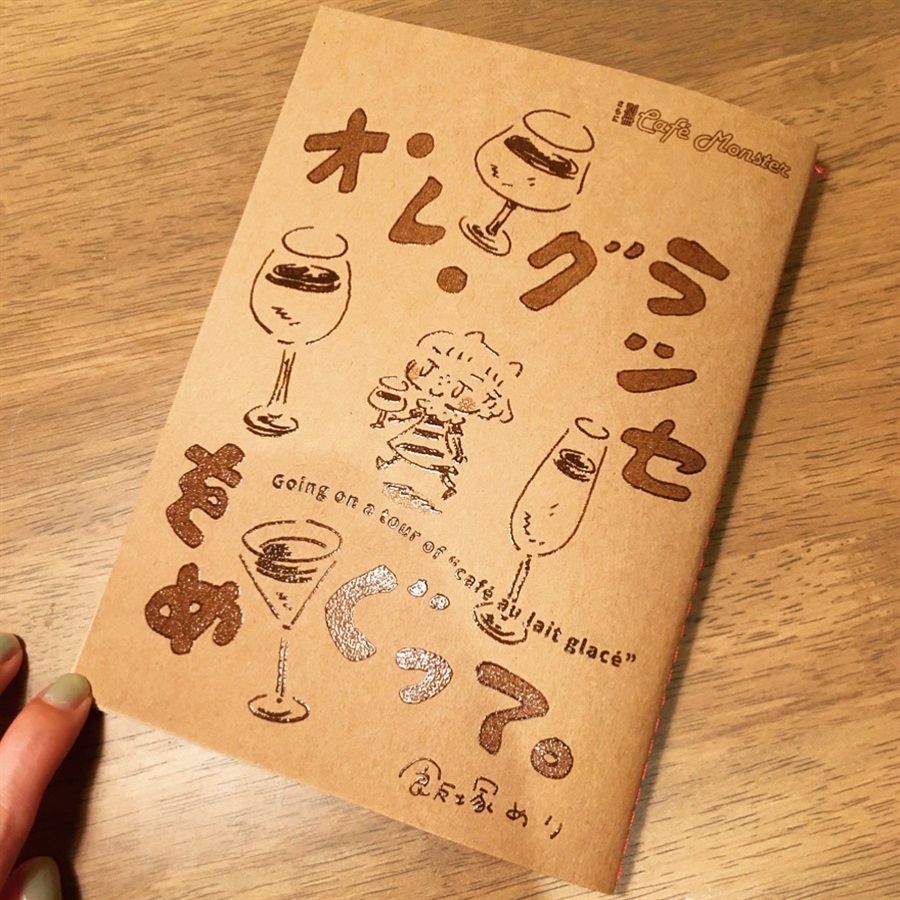 Café Monster
オ・レ・グラッセ
をめぐって。
Going on a tour of “café au lait glacé”
飯塚めり